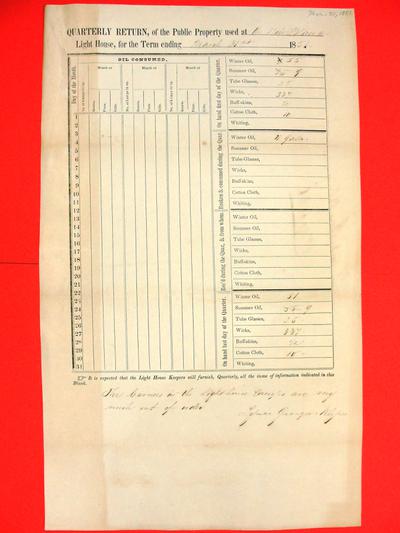 QUARTERLY RETURN, of the Public Property used at
Light House, for the Term ending March 31st 185
OIL CONSUMED.
Day of the Month.
No. of Lamps lit up.
Month of
Quarts.
Pints.
Gills.
No. of Lamps lit up.
Month of
Quarts.
Pints.
Gills.
No. of Lamps lit up.
Month of
Quarts.
Pints.
Gills.
1
2
3
4
5
6
7
8
9
10
11
12
13
14
15
16
17
18
19
20
21
22
23
24
25
26
27
28
29
30
31
On hand last day of the Quarter.
Winter Oil, 55
Summer Oil,
Tube Glasses,
Wicks,
Buffskins,
Cotton Cloth, 10
Whiting,
Broken & consumed during the Quar.
Winter Oil, 4 galls
Summer Oil,
Tube Glasses,
Wicks,
Buffskins,
Cotton Cloth,
Whiting,
Rec'd during the Quar. & from whom.
Winter Oil,
Summer Oil,
Tube Glasses,
Wicks,
Buffskins,
Cotton Cloth,
Whiting,
On hand last day of the Quarter.
Winter Oil, 51
Summer Oil,
Tube Glasses, 25
Wicks, 337
Buffskins,
Cotton Cloth, 10
Whiting,
It is expected that the Light House Keepers will furnish, Quarterly, all the items of information indicated in this
Blank.
The burners in the Light house are very
much out of order
Keeper